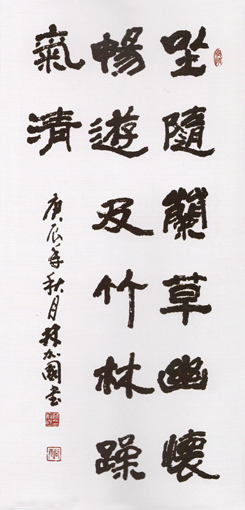 坐隨蘭草幽懷
暢遊及竹林躁
氣清
庚辰年秋月國書